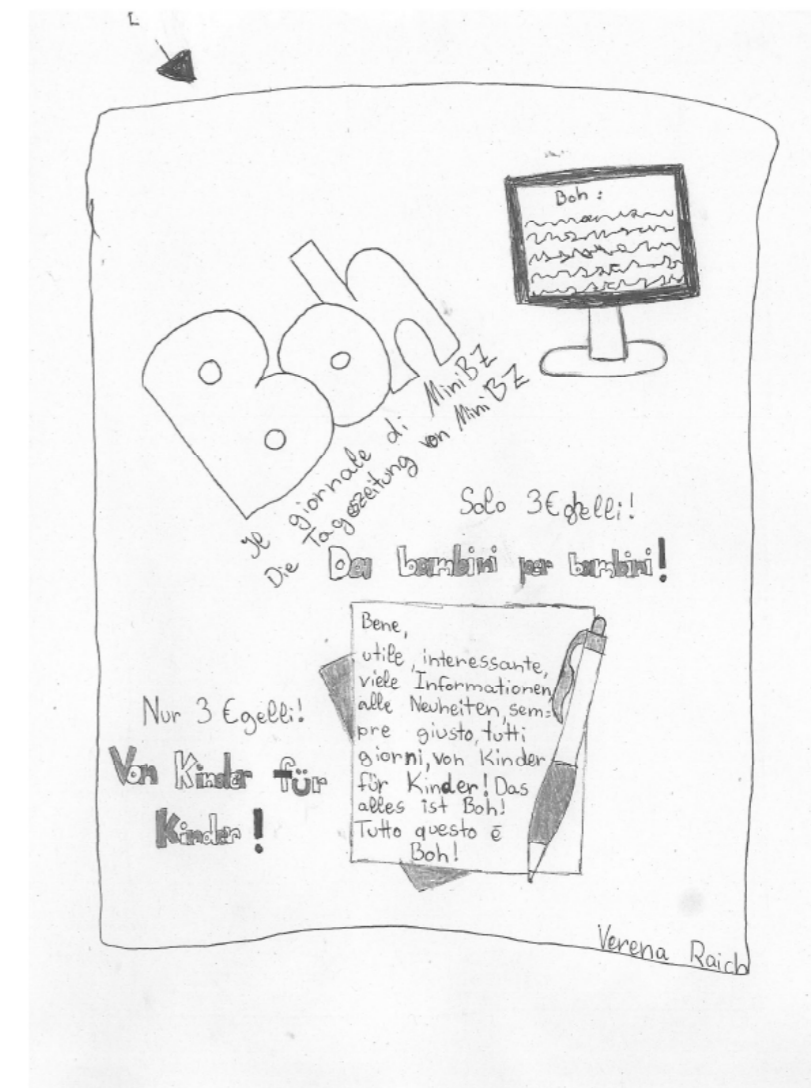 Boh :
Boh
Il giornale di MiniBZ
Die Tageszeitung von MiniBZ
Solo 3 €gelli!
Dai bambini per bambini!
Bene,
utile, interessante,
viele Informationen
alle Neuheiten, sem=
pre giusto, tutti
giorni, von Kinder
für Kinder! Das
alles ist Boh!
Tutto questo è
Boh!
Nur 3 €gelli!
Von Kinder für
Kinder!
Verena Raich